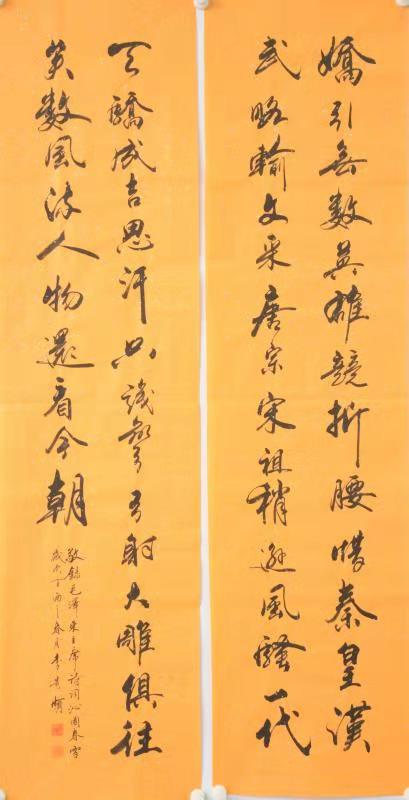 嬌引無數英雄競折腰惜秦皇漢
武略輸文采唐宗宋祖稍遜風騷一代
天驕成吉思汗只識彎弓射大雕俱往
矣數風流人物還看今朝
敬錄毛澤東主席詩詞沁園春雪
歲次丁酉之春月李